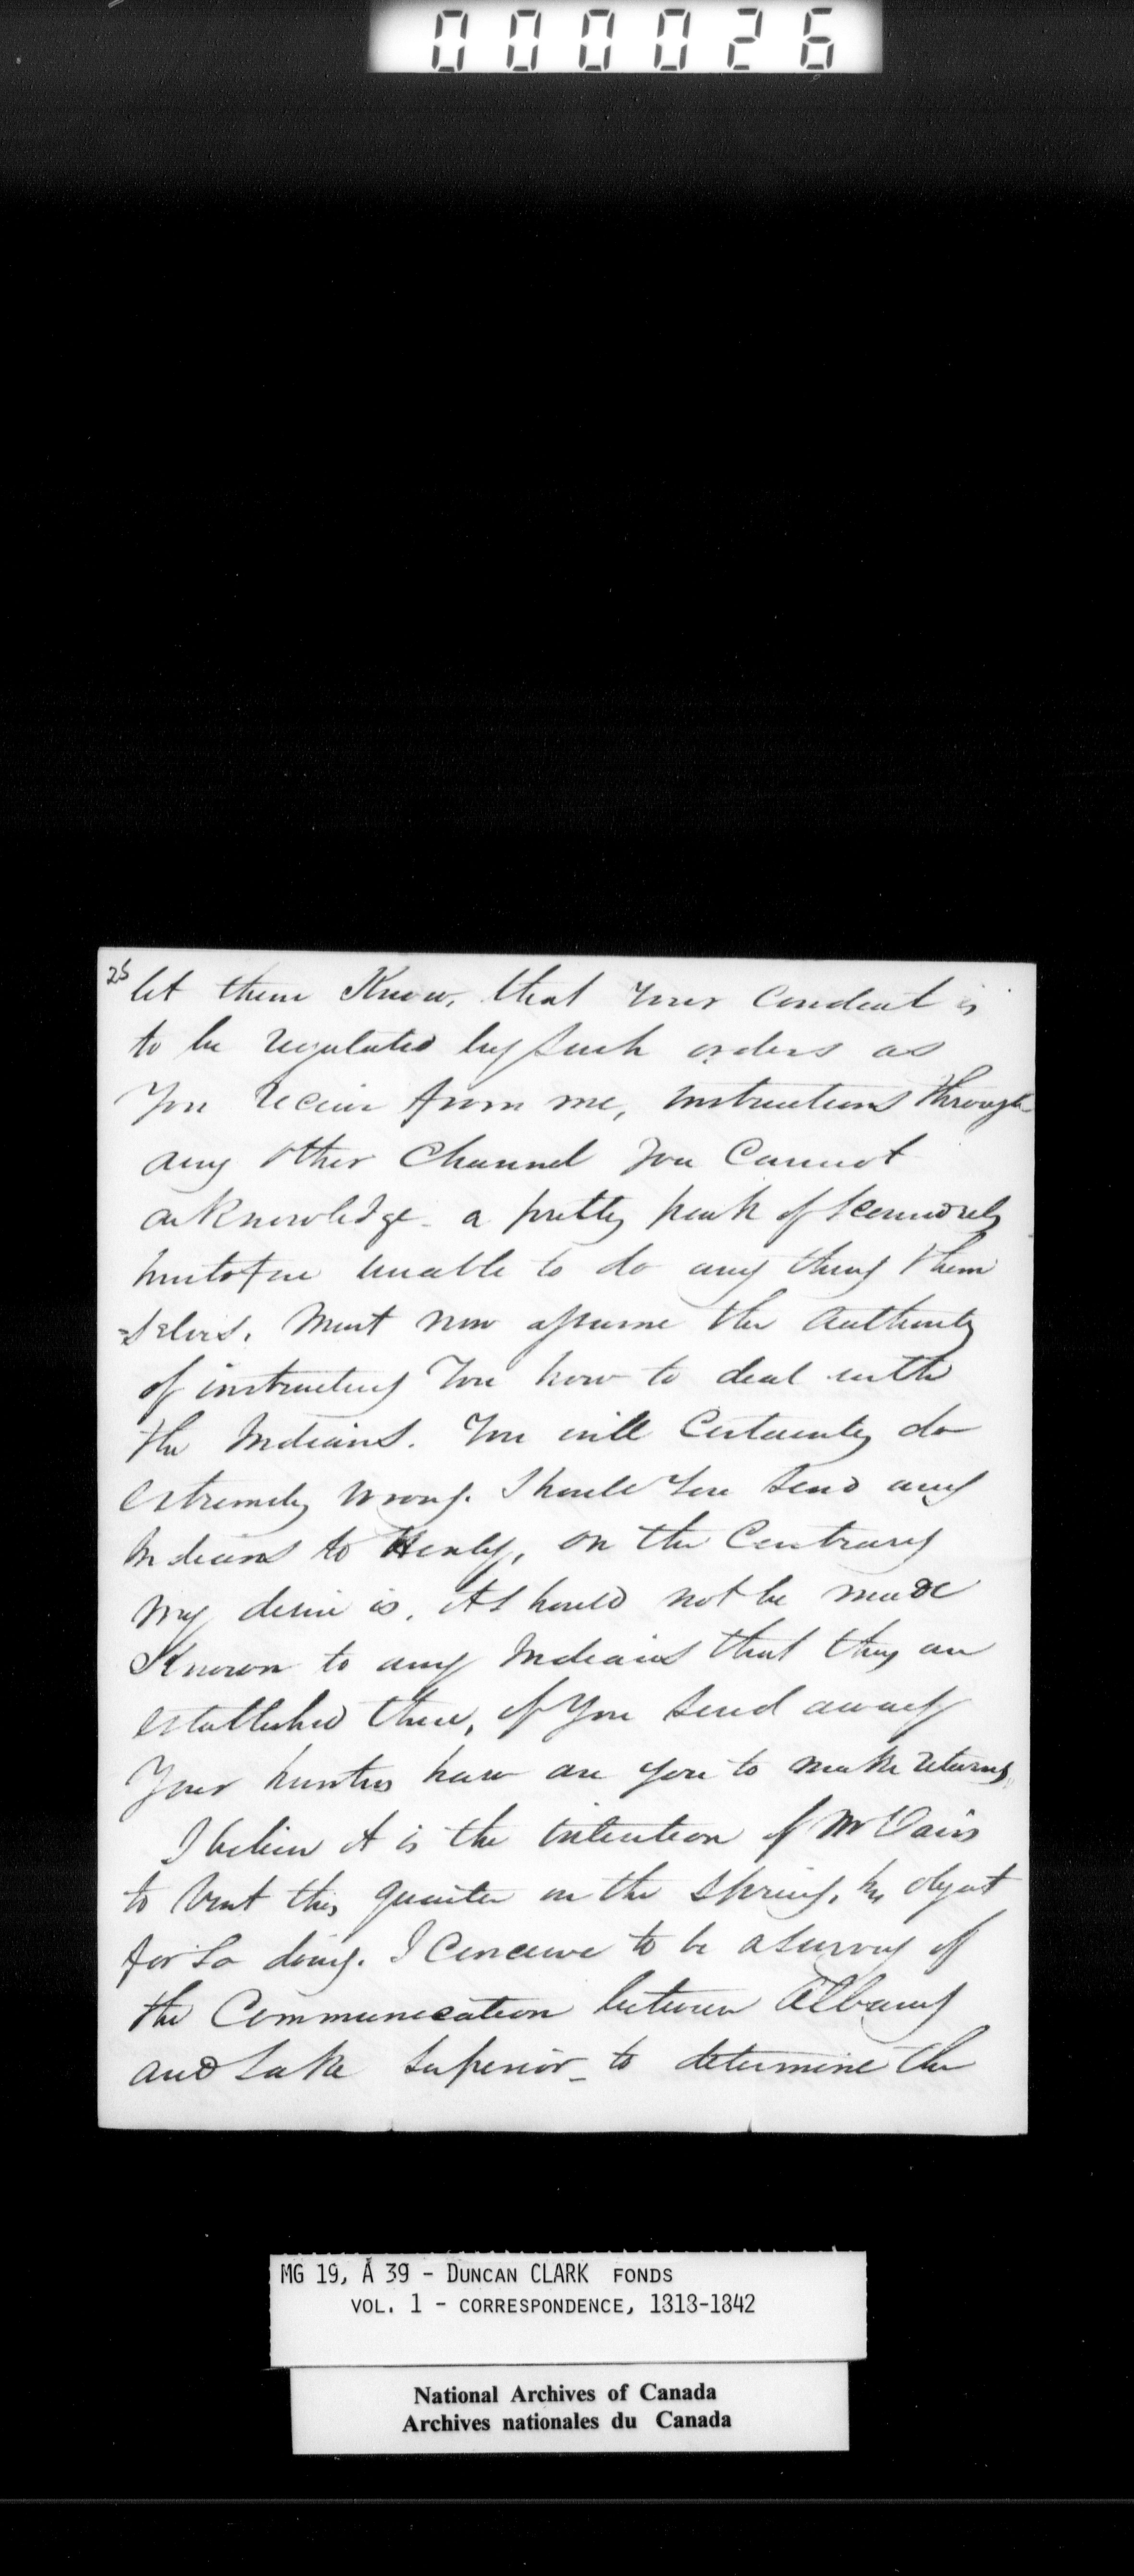 000026
25 let them Know, that your Conduct is
to be regulated by such orders as
You receive from me, instructions through
any other Channel you Cannot
acknowledge - a pretty pack of scoundrels
unable to do any thing them
=selves. Must now assume the Authority
of instructing You how to deal with
the Indians. You will Certainly do
extremely wrong. Should you send any
Indians to Henly, on the Contrary
my desire is, it should not be made
Known to any Indians that they are
established there, if you send away
Your hunters how are you to make returns,
I believe it is the intention of Mr
to visit this quarter in the spring, his object
for so doing. I Conceive to be a survey of
the Communication between Albany
and Lake Superior - to determine the
MG 19, A 39 - DUNCAN CLARK FONDS
VOL. 1 - CORRESPONDENCE, 1813-1842
National Archives of Canada
Archives nationales du Canada